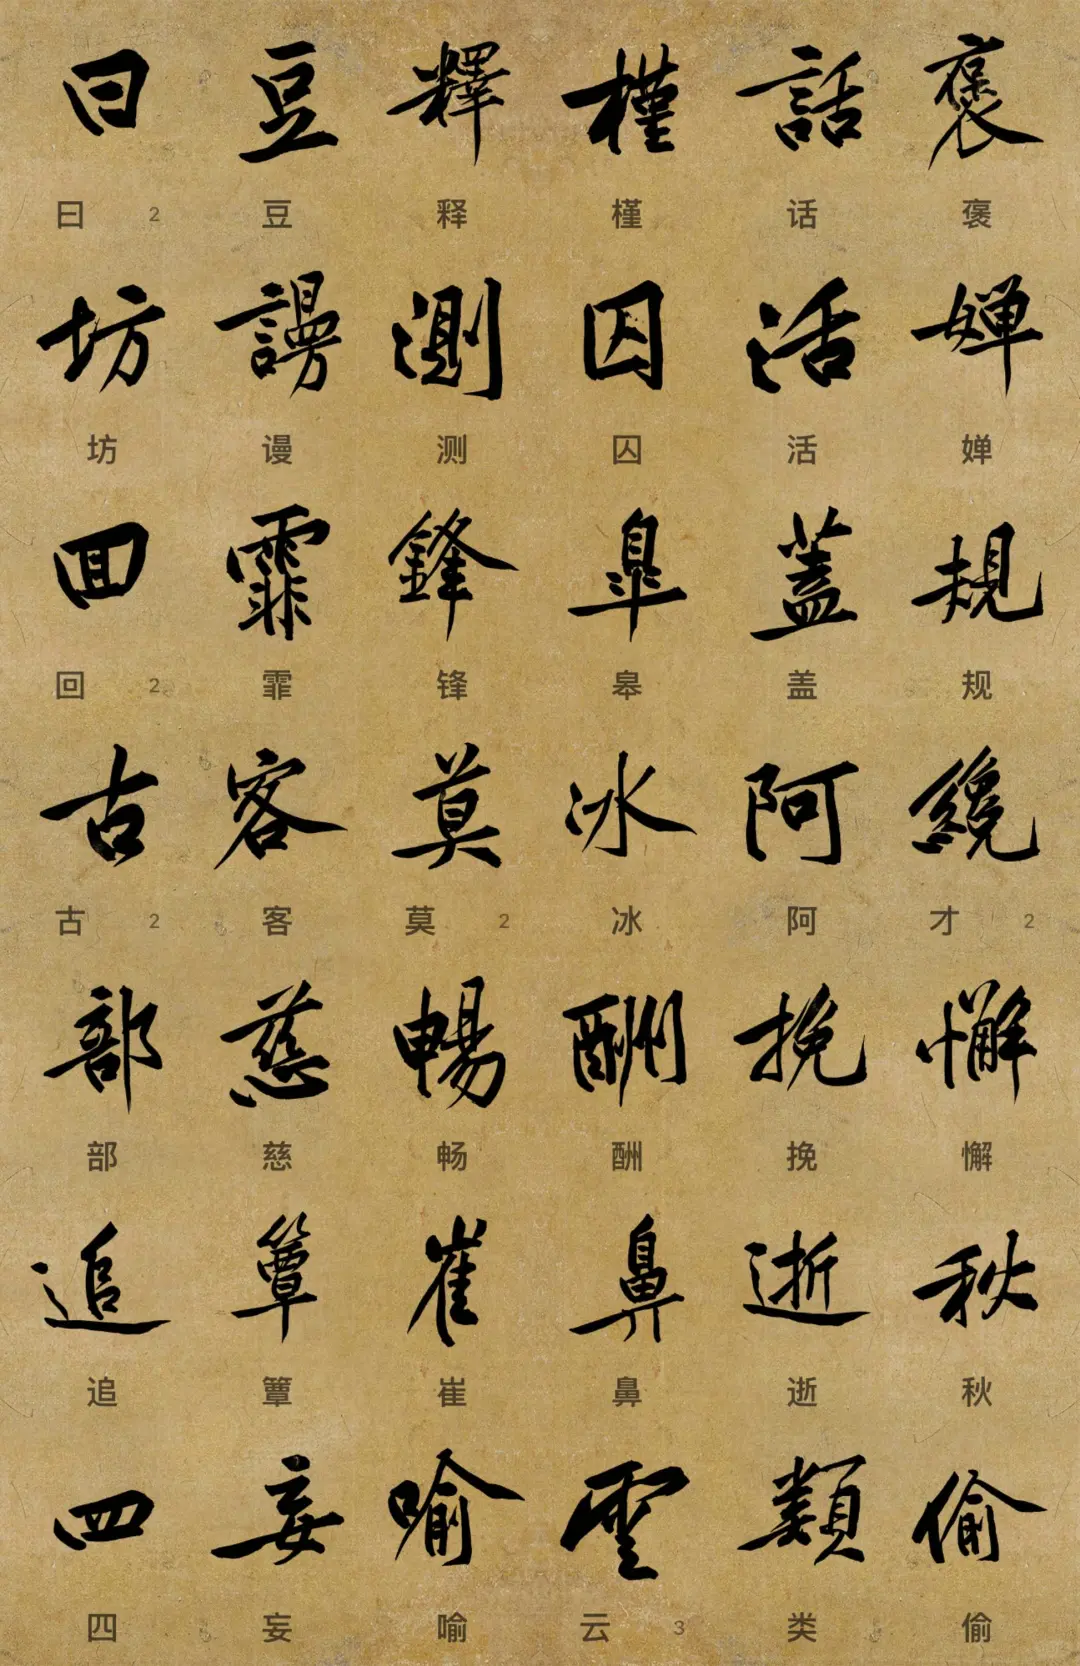 曰 豆 釋 槿 話 褒
曰 2 豆 释 槿 话 褒
坊 謾 測 囚 活 嬋
坊 谩 测 囚 活 婵
回 霏 鋒 皐 蓋 規
回 2 霏 锋 皋 盖 规
古 客 莫 冰 阿 纔
古 2 客 莫 2 冰 阿 才 2
部 慈 暢 酬 挽 懈
部 慈 畅 酬 挽 懈
追 簟 崔 鼻 逝 秋
追 簟 崔 鼻 逝 秋
四 妄 喻 雲 類 偷
四 妄 喻 云 3 类 偷